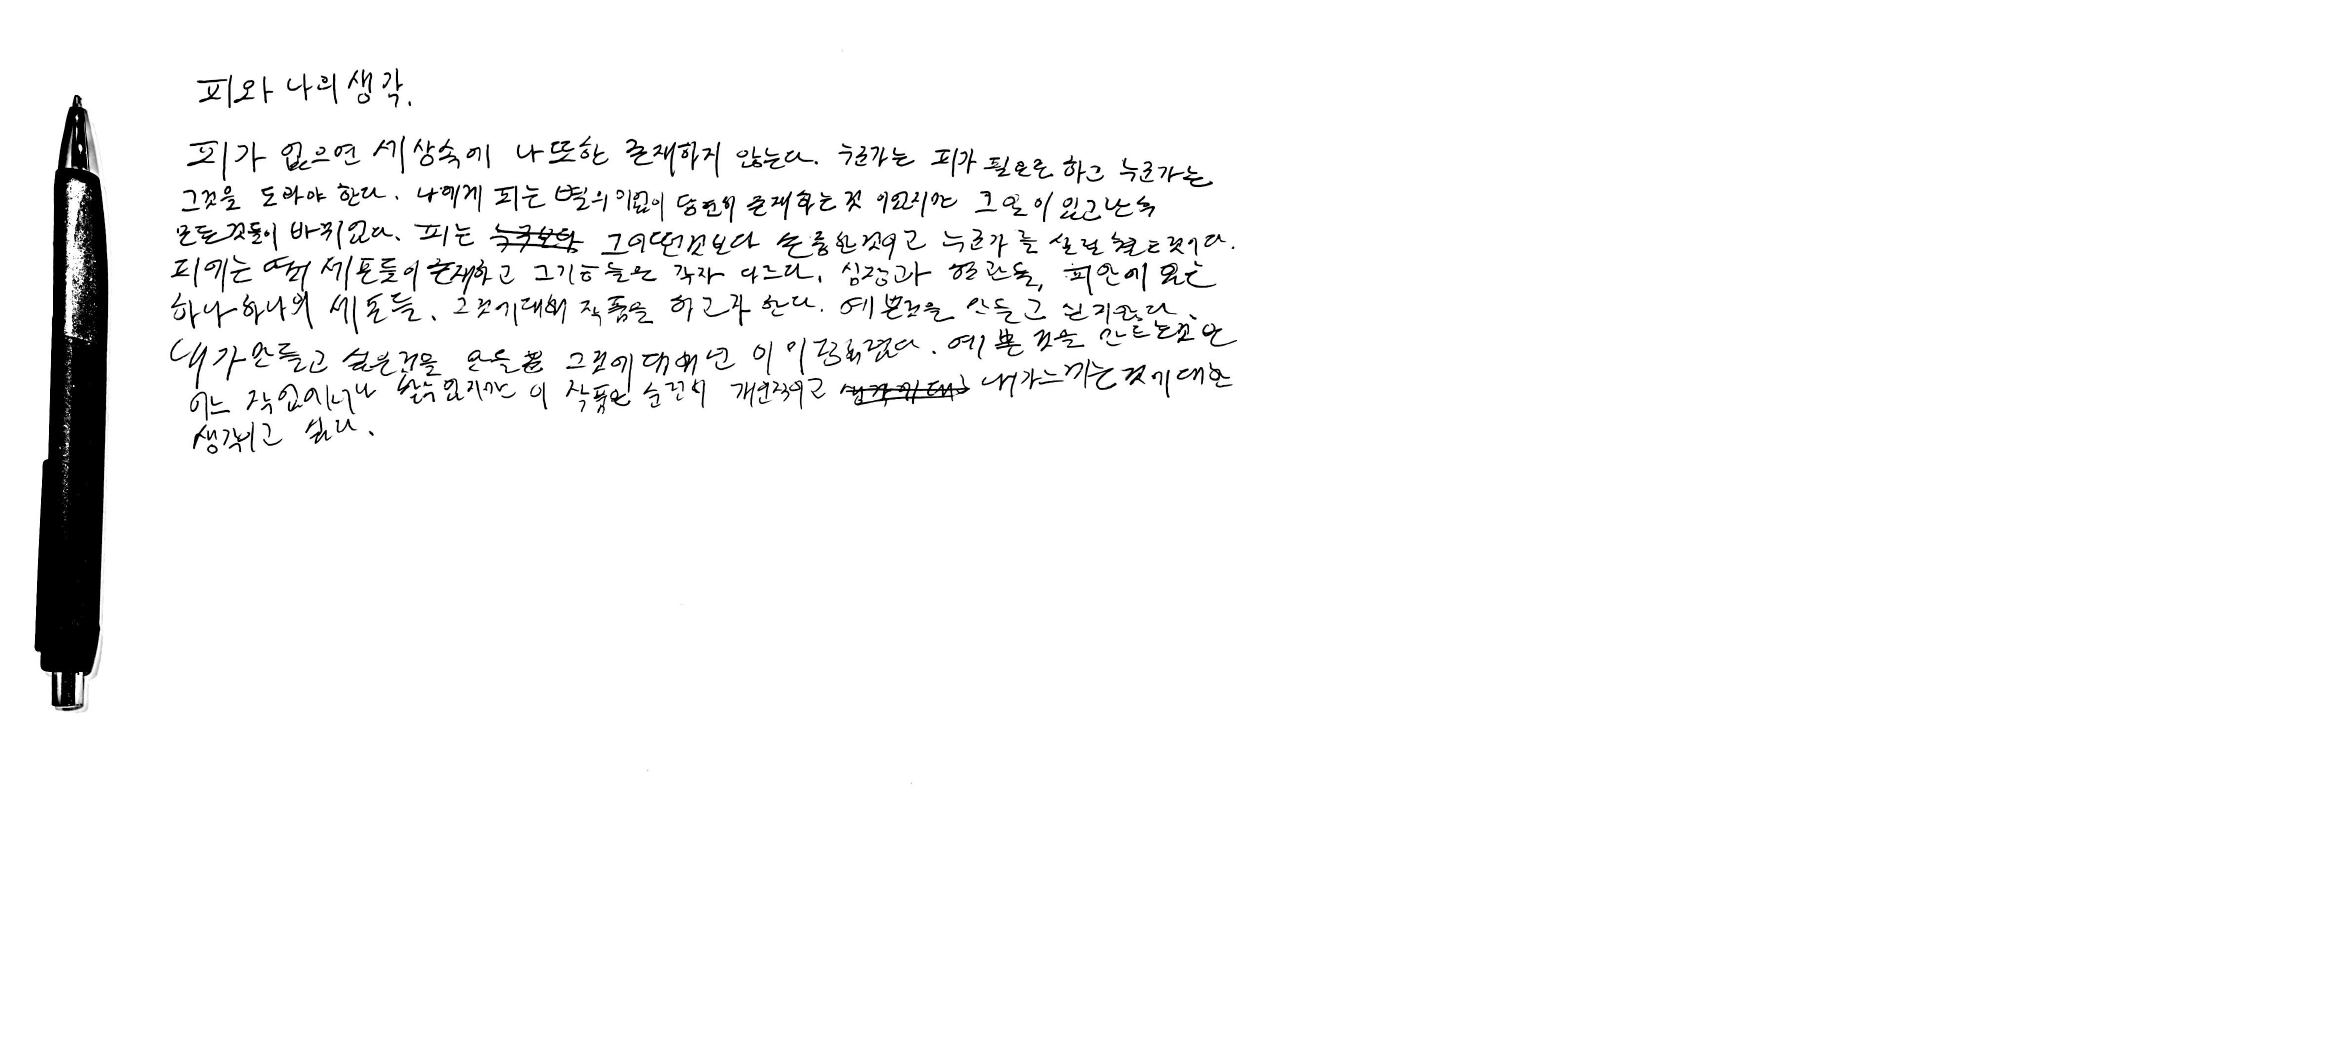 피와 나의 생각.
피가 없으면 세상속에 나 또한 존재하지 않는다. 누군가는 피가 필요로 하고 누군가는
그것을 도와야 한다. 나에게 피는 별의미없이 당연히 존재하는 것 이였지만 그 일이 있고난 후
모든것들이 바뀌었다. 피는 그 어떤것보다 소중한것이고 누군가를 살릴 수있는것이다.
피에는 여러 세포들이 존재하고 그 기능들은 각자 다르다. 심장과 혈관들, 피안에 있는
하나하나의 세포들. 그것에대해 작품을 하고자 한다. 예쁜것을 만들고 싶지않다.
내가 만들고 싶은것을 그것에 대해선 이미 예쁜 것을 만드는것은
어느 작업이나 할수있지만 이 작품은 순전히 개인적이고 내가 느끼는 것에 대한
생각이고 싶다.